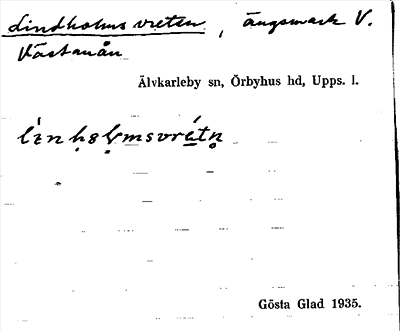 Lindholmsvreten, ängsmark V.
Västanån
Älvkarleby sn, Örbyhus hd, Upps. l.
Gösta Glad 1935.